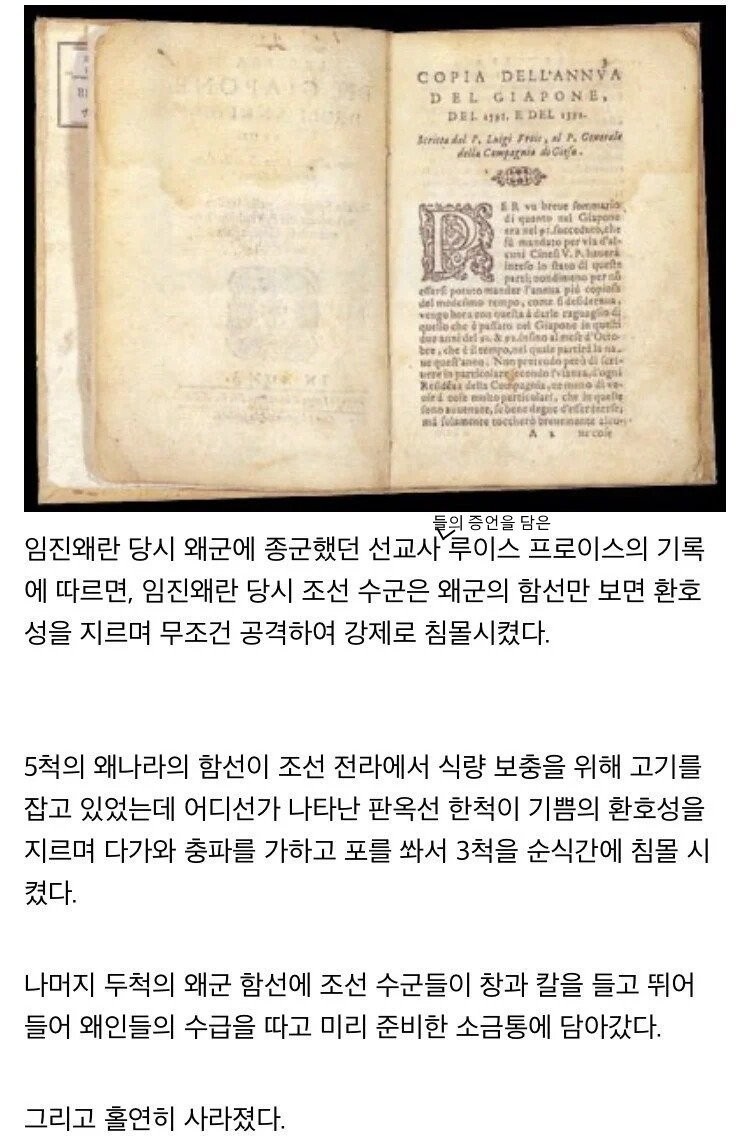 3
COPIA DELL'ANNVA
DEL GIAPONE,
DEL 1591. E DEL 1592.
Scritta dal P. Luigi Frois, al P. Generale
della Compagnia di Giesu.
PER vn breue sommario
di quanto nel Giapone
era nel 91. succeduto, che
fù mandato per via d'al-
cuni Cinesi V. P. hauerà
inteso lo stato di queste
parti; nondimeno per nõ
essersi potuto mandar l'annua più copiosa
del medesimo tempo, come si desideraua,
vengo hora con questa à darle raguaglio di
quello che è passato nel Giapone in questi
due anni del 91. & 92. fino al mese d'Otto-
bre, che è il tempo, nel quale partirà la na-
ue quest'anno. Non pretendo però di scri-
uere in particolare secondo l'vsanza, d'ogni
Residẽza della Compagnia, ne meno di ve-
nir à cose molto particolari, che in queste
sono auuenute, se bene degne d'esser intese;
mà solamente toccherò breuemente alcu-
A 2 ne cose
들의 증언을 담은
임진왜란 당시 왜군에 종군했던 선교사 루이스 프로이스의 기록
에 따르면, 임진왜란 당시 조선 수군은 왜군의 함선만 보면 환호
성을 지르며 무조건 공격하여 강제로 침몰시켰다.
5척의 왜나라의 함선이 조선 전라에서 식량 보충을 위해 고기를
잡고 있었는데 어디선가 나타난 판옥선 한척이 기쁨의 환호성을
지르며 다가와 충파를 가하고 포를 쏴서 3척을 순식간에 침몰 시
켰다.
나머지 두척의 왜군 함선에 조선 수군들이 창과 칼을 들고 뛰어
들어 왜인들의 수급을 따고 미리 준비한 소금통에 담아갔다.
그리고 홀연히 사라졌다.